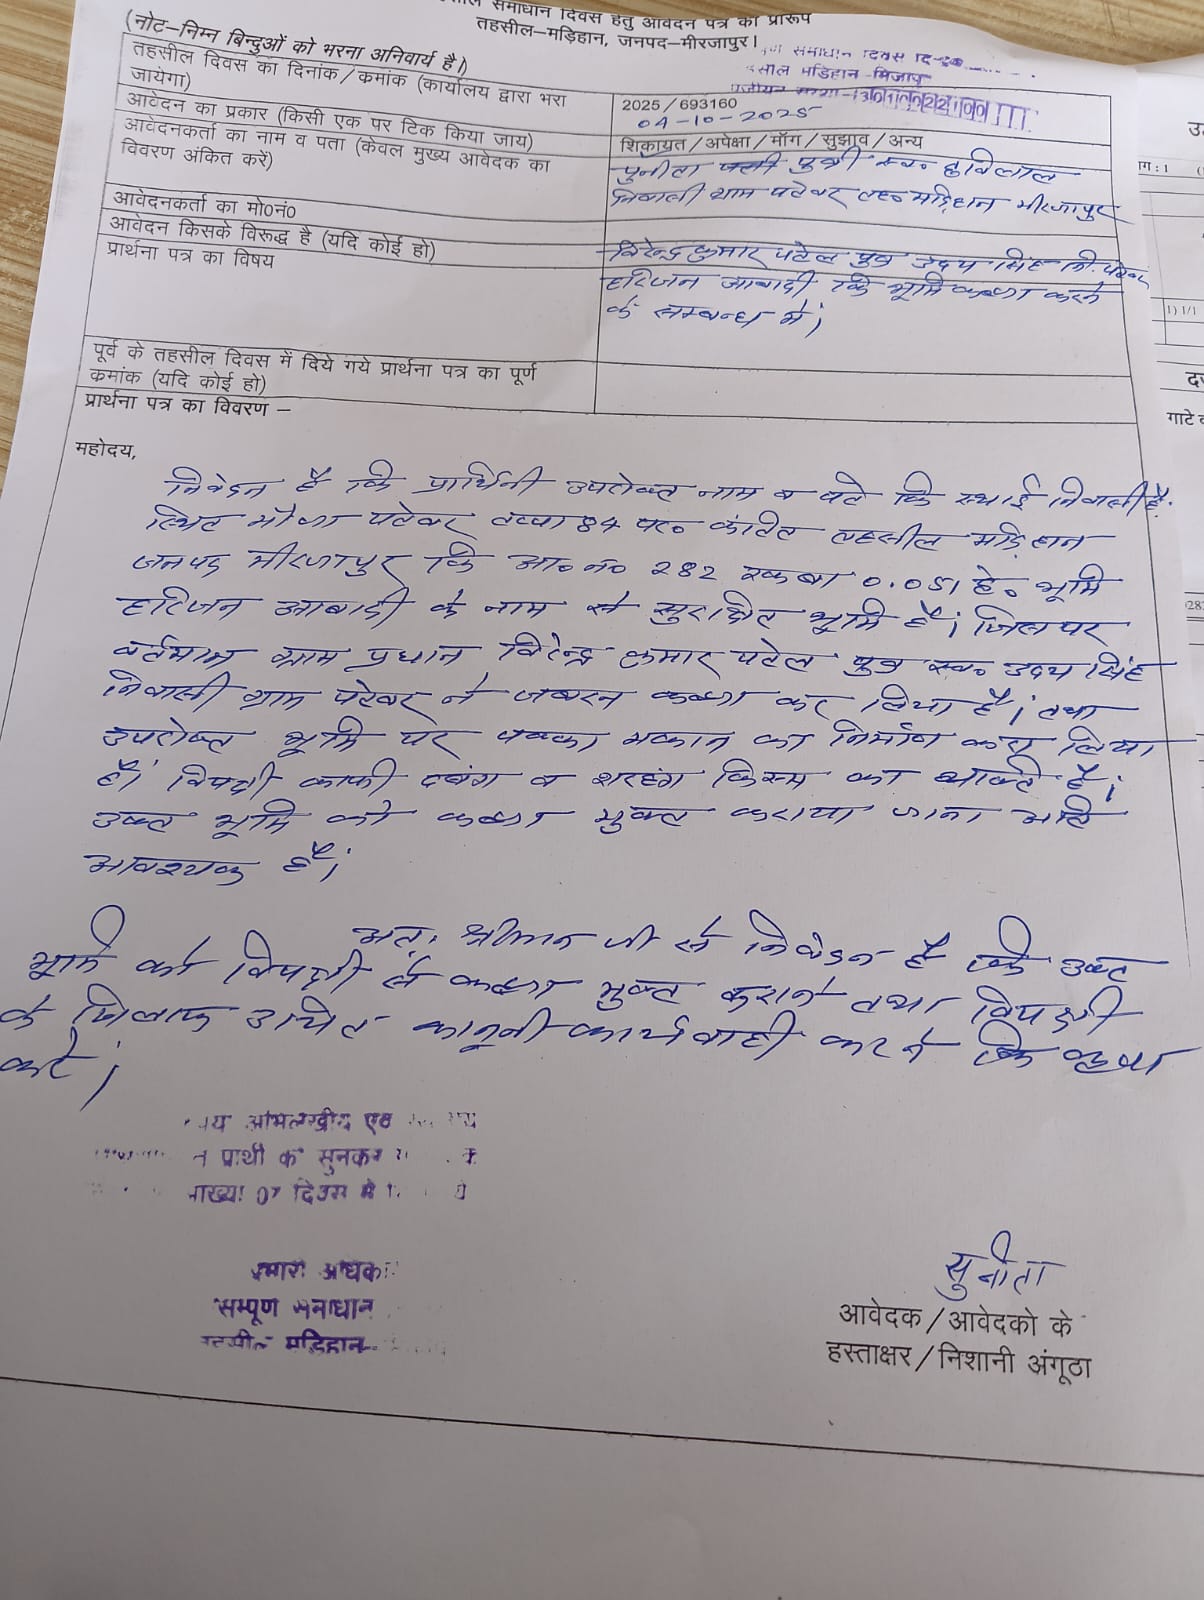 समाधान दिवस हेतु आवेदन पत्र का प्रारूप
तहसील–मड़िहान, जनपद–मीरजापुर।
(नोट–निम्न बिन्दुओं को भरना अनिवार्य है।)
समाधान दिवस
मड़िहान
तहसील दिवस का दिनांक/क्रमांक (कार्यालय द्वारा भरा जायेगा)
2025/693160
04-10-2025
आवेदन का प्रकार (किसी एक पर टिक किया जाय)
शिकायत/अपेक्षा/मॉग/सुझाव/अन्य
आवेदनकर्ता का नाम व पता (केवल मुख्य आवेदक का विवरण अंकित करें)
पुत्री स्व०
निवासी ग्राम पटेवर तह० मड़िहान मीरजापुर
आवेदनकर्ता का मो०नं०
आवेदन किसके विरूद्ध है (यदि कोई हो)
विरेन्द्र कुमार पटेल पुत्र उदय सिंह नि. पटेवर
प्रार्थना पत्र का विषय
हरिजन आबादी कि भूमि कब्जा करने
के सम्बन्ध में।
पूर्व के तहसील दिवस में दिये गये प्रार्थना पत्र का पूर्ण
क्रमांक (यदि कोई हो)
प्रार्थना पत्र का विवरण –
महोदय,
निवेदन है कि प्रार्थिनी उपरोक्त नाम व पते कि स्थाई निवासी है।
स्थित मौजा पटेवर तप्पा 84 पर० कंतित तहसील मड़िहान
जनपद मीरजापुर कि आ० नं० 282 रकबा 0.051 हे० भूमि
हरिजन आबादी के नाम से सुरक्षित भूमि है। जिसपर
वर्तमान ग्राम प्रधान विरेन्द्र कुमार पटेल पुत्र स्व० उदय सिंह
निवासी ग्राम पटेवर ने जबरन कब्जा कर लिया है। तथा
उपरोक्त भूमि पर पक्का मकान का निर्माण करा लिया
है। विपक्षी काफी दबंग व सरहंग किस्म का व्यक्ति है।
उक्त भूमि को कब्जा मुक्त कराया जाना अति
आवश्यक है।
अतः श्रीमान जी से निवेदन है कि उक्त
भूमि को विपक्षी से कब्जा मुक्त कराने तथा विपक्षी
के खिलाफ उचित कानूनी कार्यवाही करने कि कृपा
करें।
प्रार्थी को सुनकर
07 दिवस में
सम्पूर्ण समाधान
मड़िहान
सुनीता
आवेदक/आवेदको के
हस्ताक्षर/निशानी अंगूठा